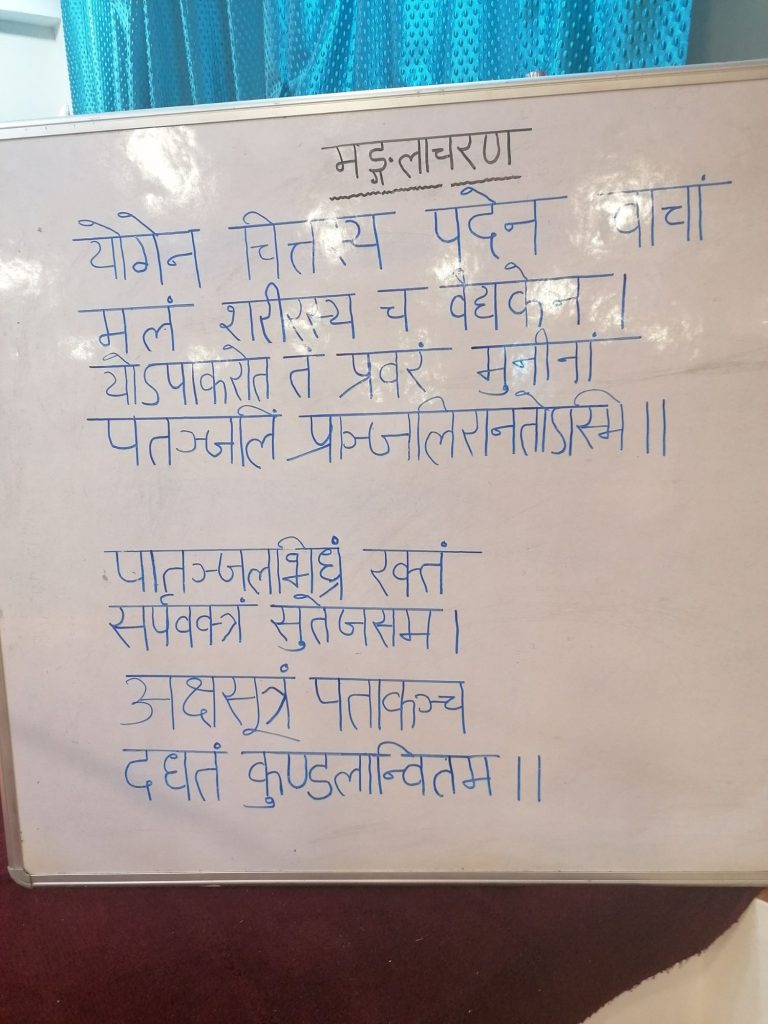 मङ्गलाचरण
योगेन चित्तस्य पदेन वाचां
मलं शरीरस्य च वैद्यकेन ।
योऽपाकरोत तं प्रवरं मुनीनां
पतञ्जलिं प्राञ्जलिरानतोऽस्मि ।।
पातञ्जलभिध्रं रक्तं
सर्पवक्त्रं सुतेजसम ।
अक्षसूत्रं पताकञ्च
दधतं कुण्डलान्वितम ।।